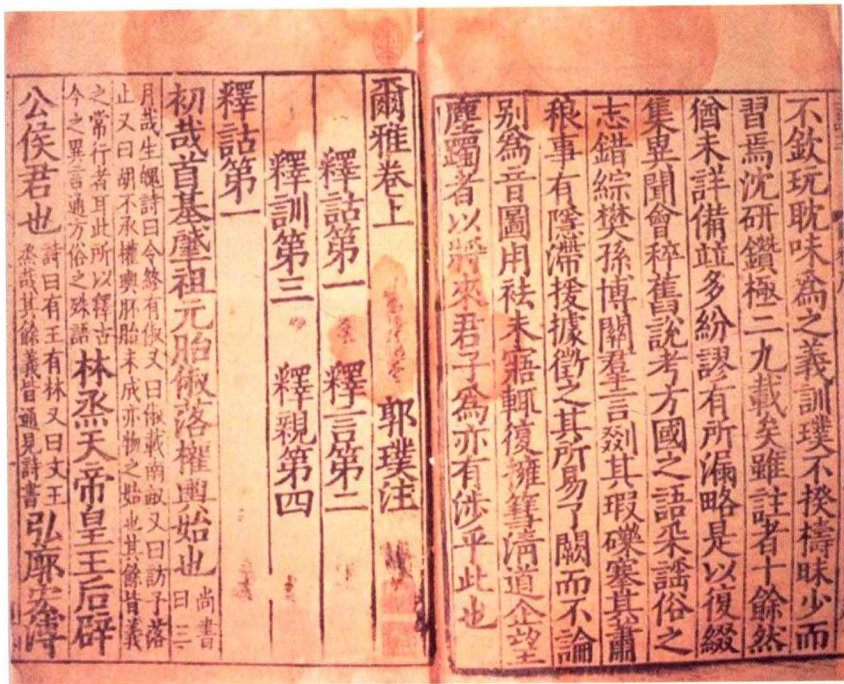 不欽玩耽味爲之義訓璞不揆檮昧少而
習焉沈研鑽極二九載矣雖註者十餘然
猶未詳備竝多紛謬有所漏略是以復綴
集異聞會稡舊說考方國之語采謠俗之
志錯綜樊孫博關羣言剟其瑕礫塞其肅
稂事有隱滯援據徵之其所易了闕而不論
別爲音圖用袪未寤輒復擁篲清道企望
塵躅者以將來君子爲亦有涉乎此也
爾雅卷上 郭璞注
釋詁第一 釋言第二
釋訓第三 釋親第四
釋詁第一
初哉首基肇祖元胎俶落權輿始也 尚書曰三
月哉生魄詩曰令終有俶又曰俶載南畝又曰訪予落
止又曰胡不承權輿胚胎未成亦物之始也其餘皆義
之常行者耳此所以釋古
今之異言通方俗之殊語
林烝天帝皇王后辟
公侯君也
詩曰有王有林又曰文王
烝哉其餘義皆通見詩書
弘廓宏溥